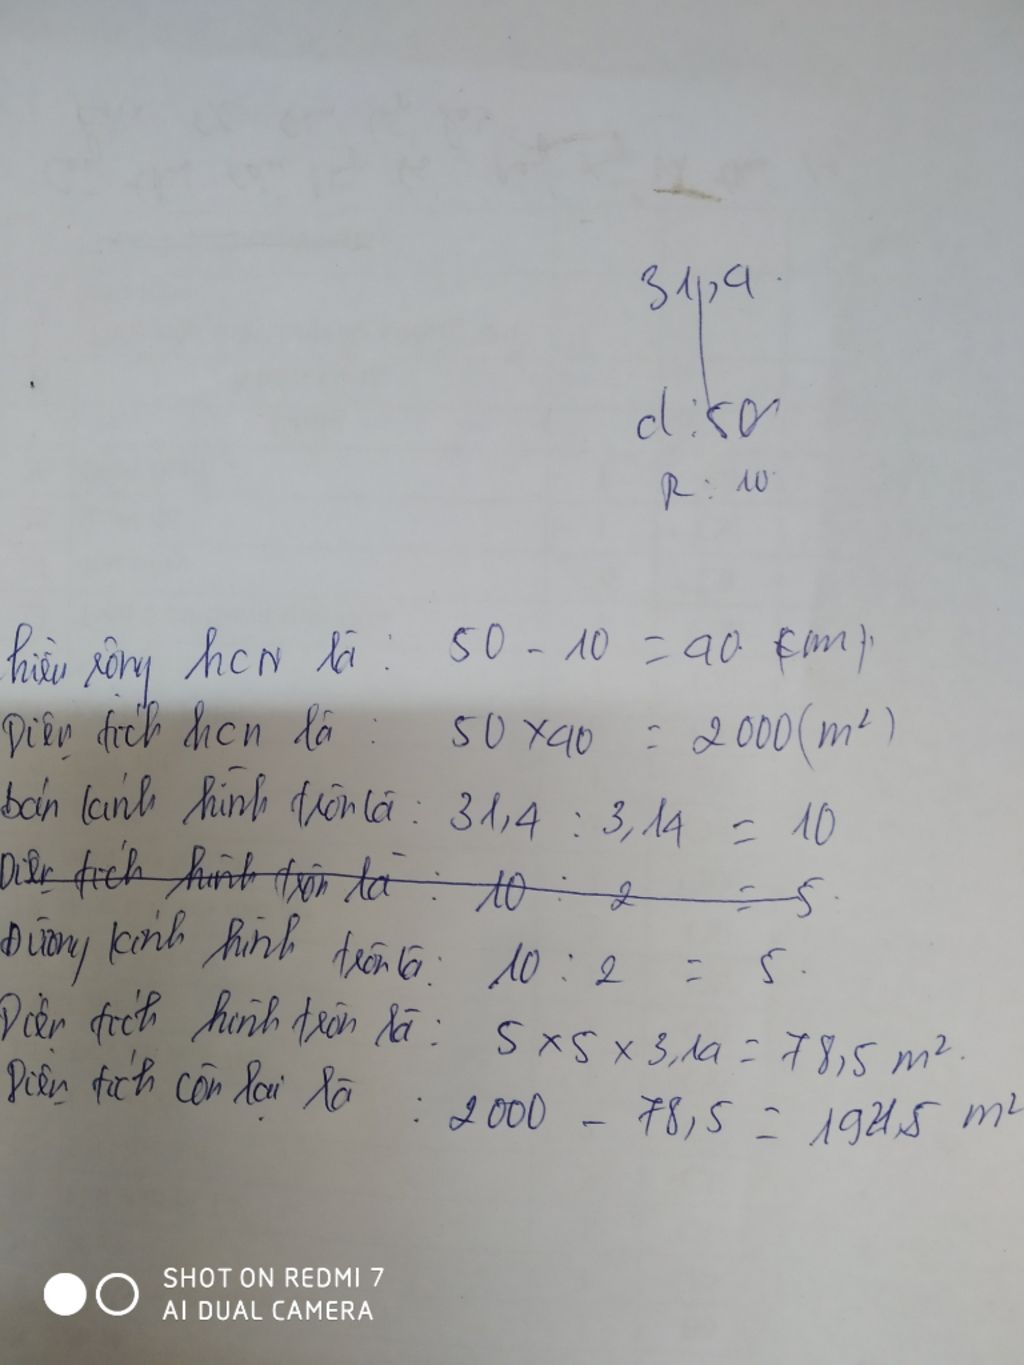 31,4
d: 50
R: 10
hiều rộng hcn là: 50 - 10 = 40 (m)
Diện tích hcn là: 50 x 40 = 2000 (m²)
bán kính hình tròn là: 31,4 : 3,14 = 10
Diện tích hình tròn là: 10 : 2 = 5
Đường kính hình tròn là: 10 : 2 = 5.
Diện tích hình tròn là: 5 x 5 x 3,14 = 78,5 m².
Diện tích còn lại là: 2000 - 78,5 = 1921,5 m²
SHOT ON REDMI 7
AI DUAL CAMERA